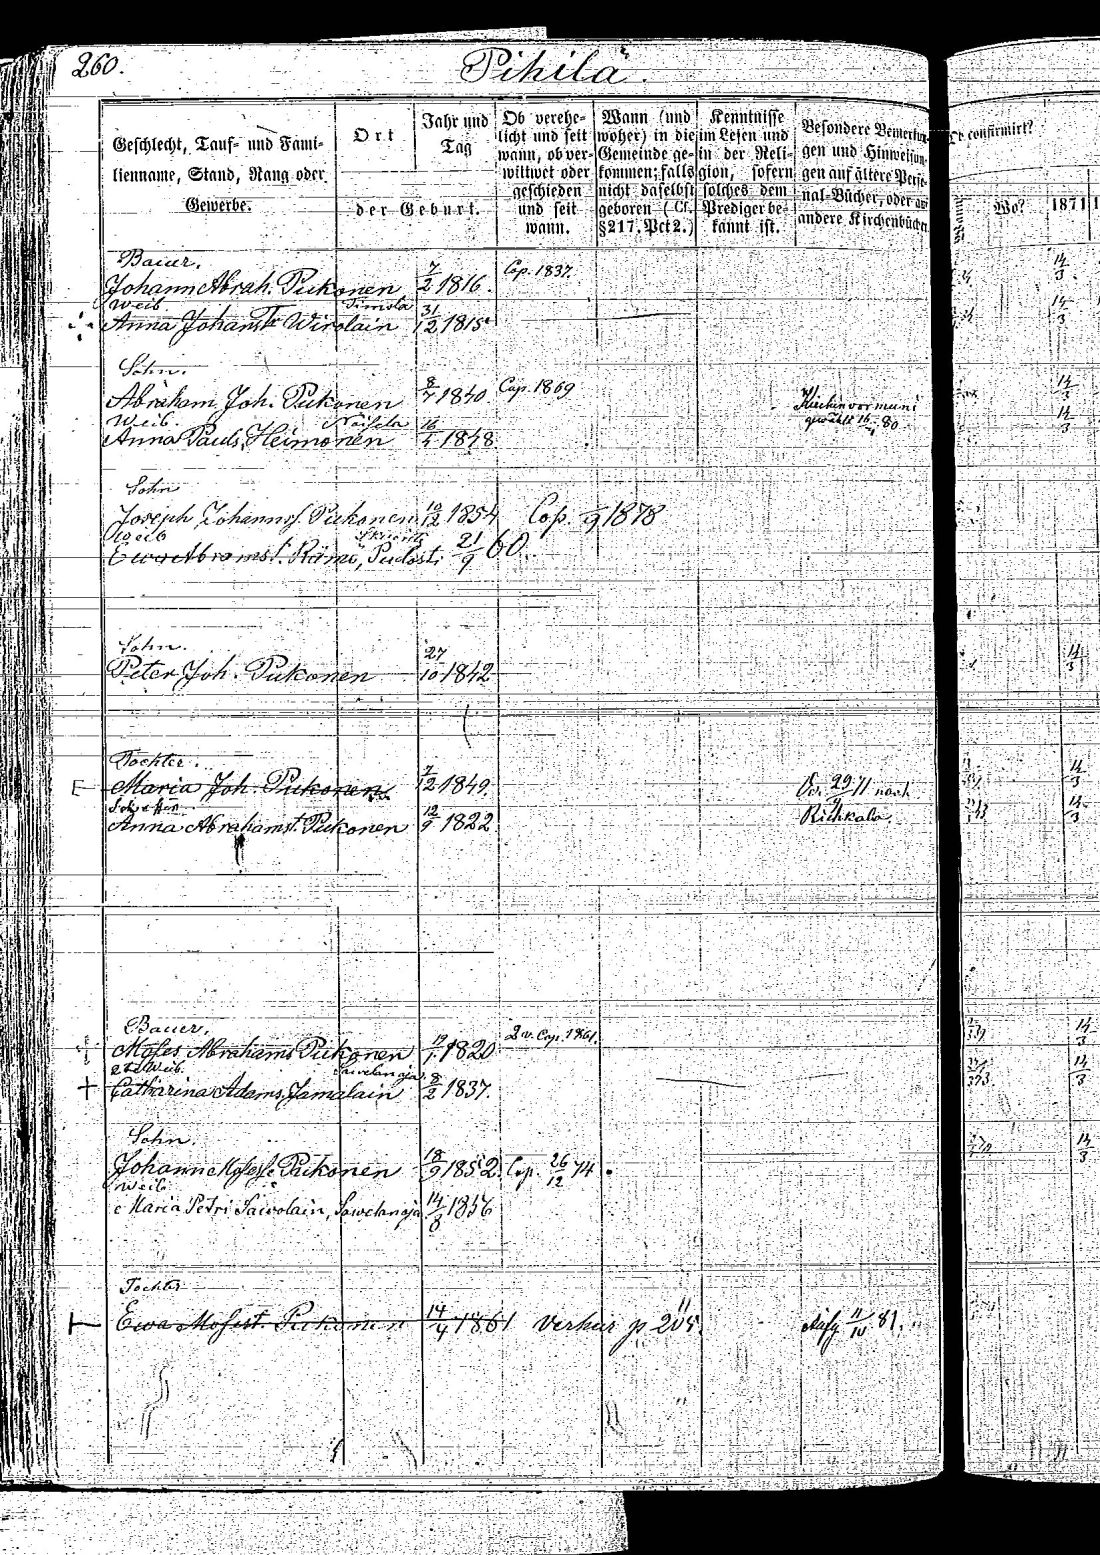 260.
Pihilä.
Geschlecht, Tauf- und Fami-
lienname, Stand, Rang oder
Gewerbe.
Ort
der Geburt.
Jahr und
Tag
Ob verehe-
licht und seit
wann, ob ver-
wittwet oder
geschieden
und seit
wann.
Wann (und
woher) in die
Gemeinde ge-
kommen; falls
nicht daselbst
geboren (Cf.
§ 217. Pct 2.)
Kenntnisse
im Lesen und
in der Reli-
gion, sofern
solches dem
Prediger be-
kannt ist.
Besondere Bemerkun-
gen und Hinweisun-
gen auf ältere Perso-
nal-Bücher, oder
andere Kirchenbücher
confirmirt?
Wann?
Wo?
1871
Bauer.
Johann Abrah. Pukonen 7/2 1816. Cop. 1837. 14/3
Weib
Anna Johanst. Wirolain 31/12 1815 14/3
Sohn.
Abraham Joh. Pukonen 8/7 1840 Cop. 1869 14/3
Kirchenvormund
gewählt 80
Weib.
Anna Pauls. Heimonen 16/4 1848 14/3
Sohn
Joseph Johannes. Pukonen 1854 Cop. /9 1878
Weib
Ewa Abramst. Rämö, Pudosti 21/9 60.
Sohn.
Peter Joh. Pukonen 27/10 1842 14/3
Tochter.
Maria Joh. Pukonen 7/12 1849. 29/11 nach 14/3
Anna Abrahamst. Pukonen 12/9 1822 14/3
Bauer.
Moses Abrahams Pukonen 19/1 1820 2 v. Cop. 1861. 14/3
2te Weib. Sawelanoja
Catharina Adams. Jamalain 8/2 1837. 14/3
Sohn.
Johann Moses. Pukonen 18/9 1852. Cop. 26/12 74 14/3
Weib
Maria Petri Saivolain, Sawelanoja 14/8 1856
Tochter
Ewa Mosest. Pukonen 14/4 1861 verheir p 205. 11/10 81.